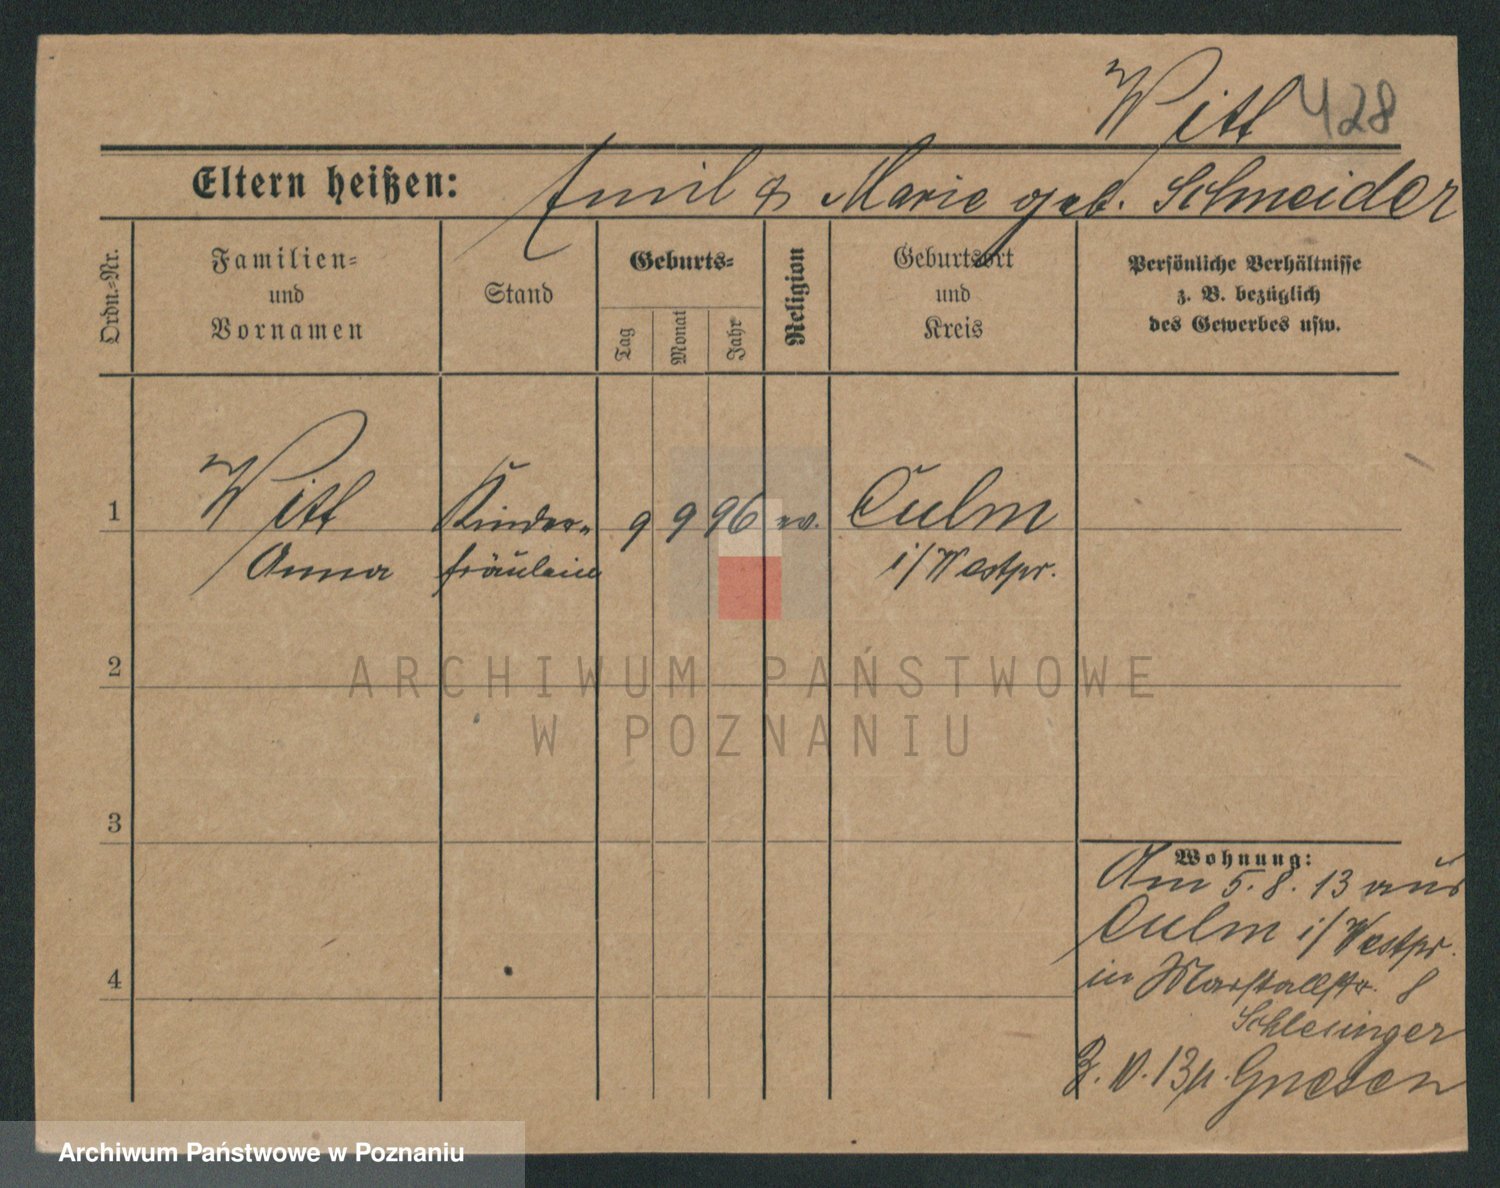 Witt 428
Eltern heißen: Emil & Marie geb. Schneider
Ordn.-Nr.
Familien-
und
Vornamen
Stand
Geburts-
Tag
Monat
Jahr
Religion
Geburtsort
und
Kreis
Persönliche Verhältnisse
z. B. bezüglich
des Gewerbes usw.
1 Witt Kinder- 9 9 96 ev. Culm
Anna fräulein i/Westpr.
2
3
4
Wohnung:
Am 5.8.13 aus
Culm i/Westpr.
in Marstallstr. 8
Schlesinger
13 n. Gnesen
ARCHIWUM PAŃSTWOWE
W POZNANIU
Archiwum Państwowe w Poznaniu